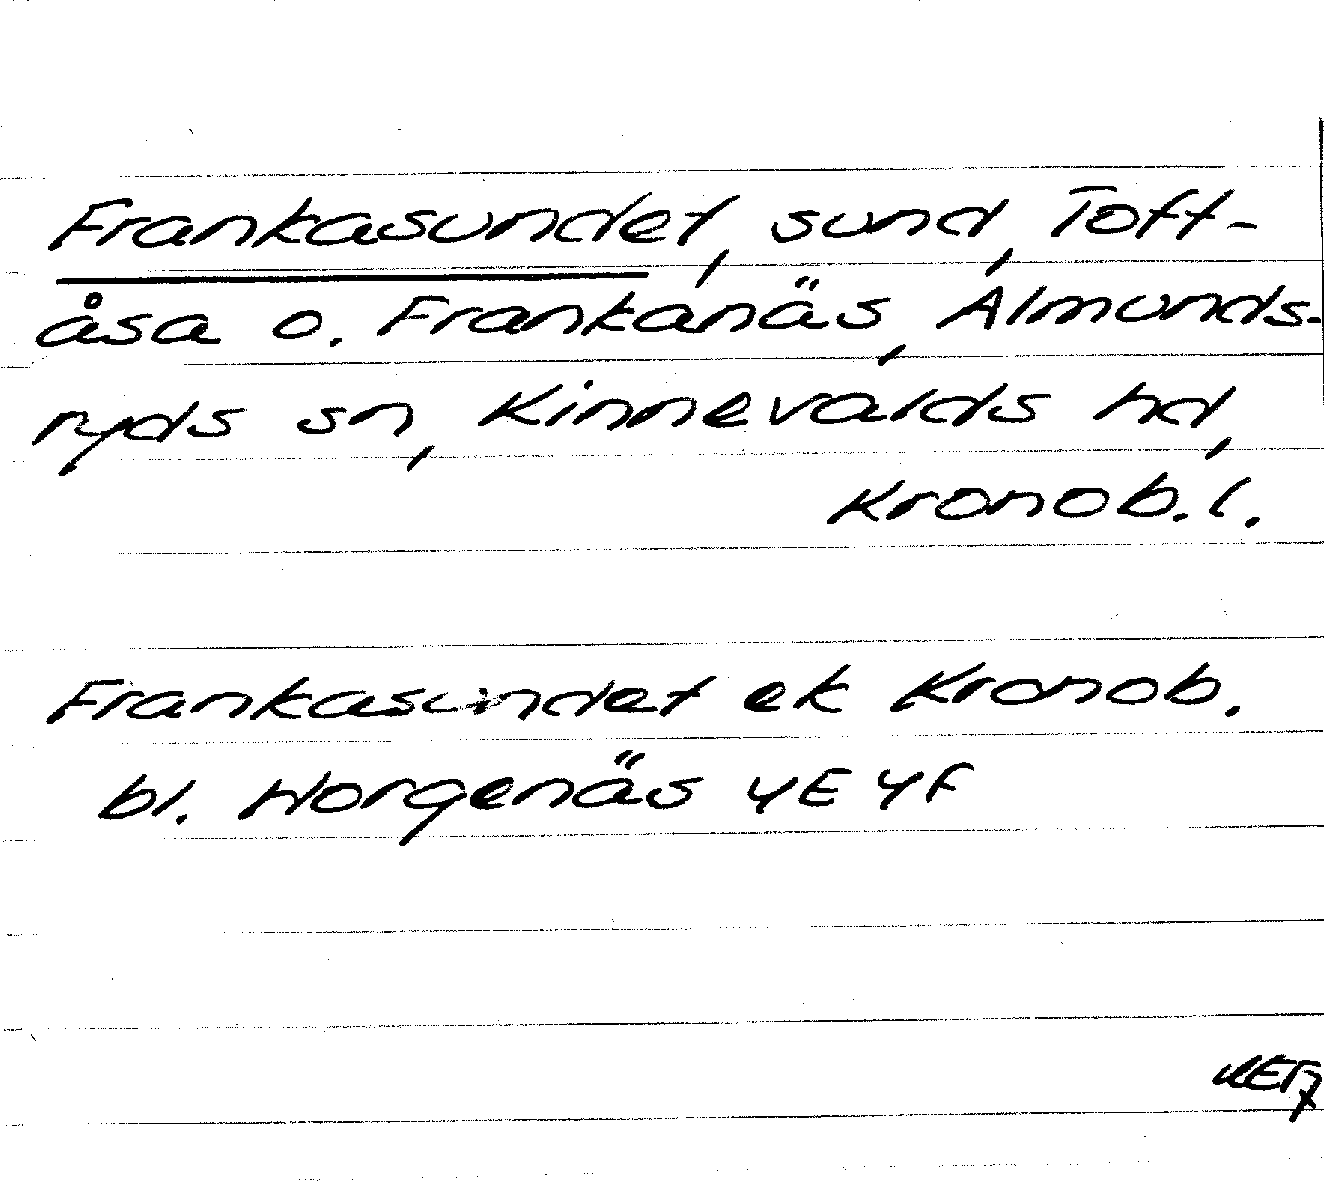 Frankasundet, sund, Toft-
åsa o. Frankanäs, Almunds-
ryds sn, Kinnevalds hd,
Kronob. l.
Frankasundet ek Kronob.
bl. Horgenäs 4E 4F